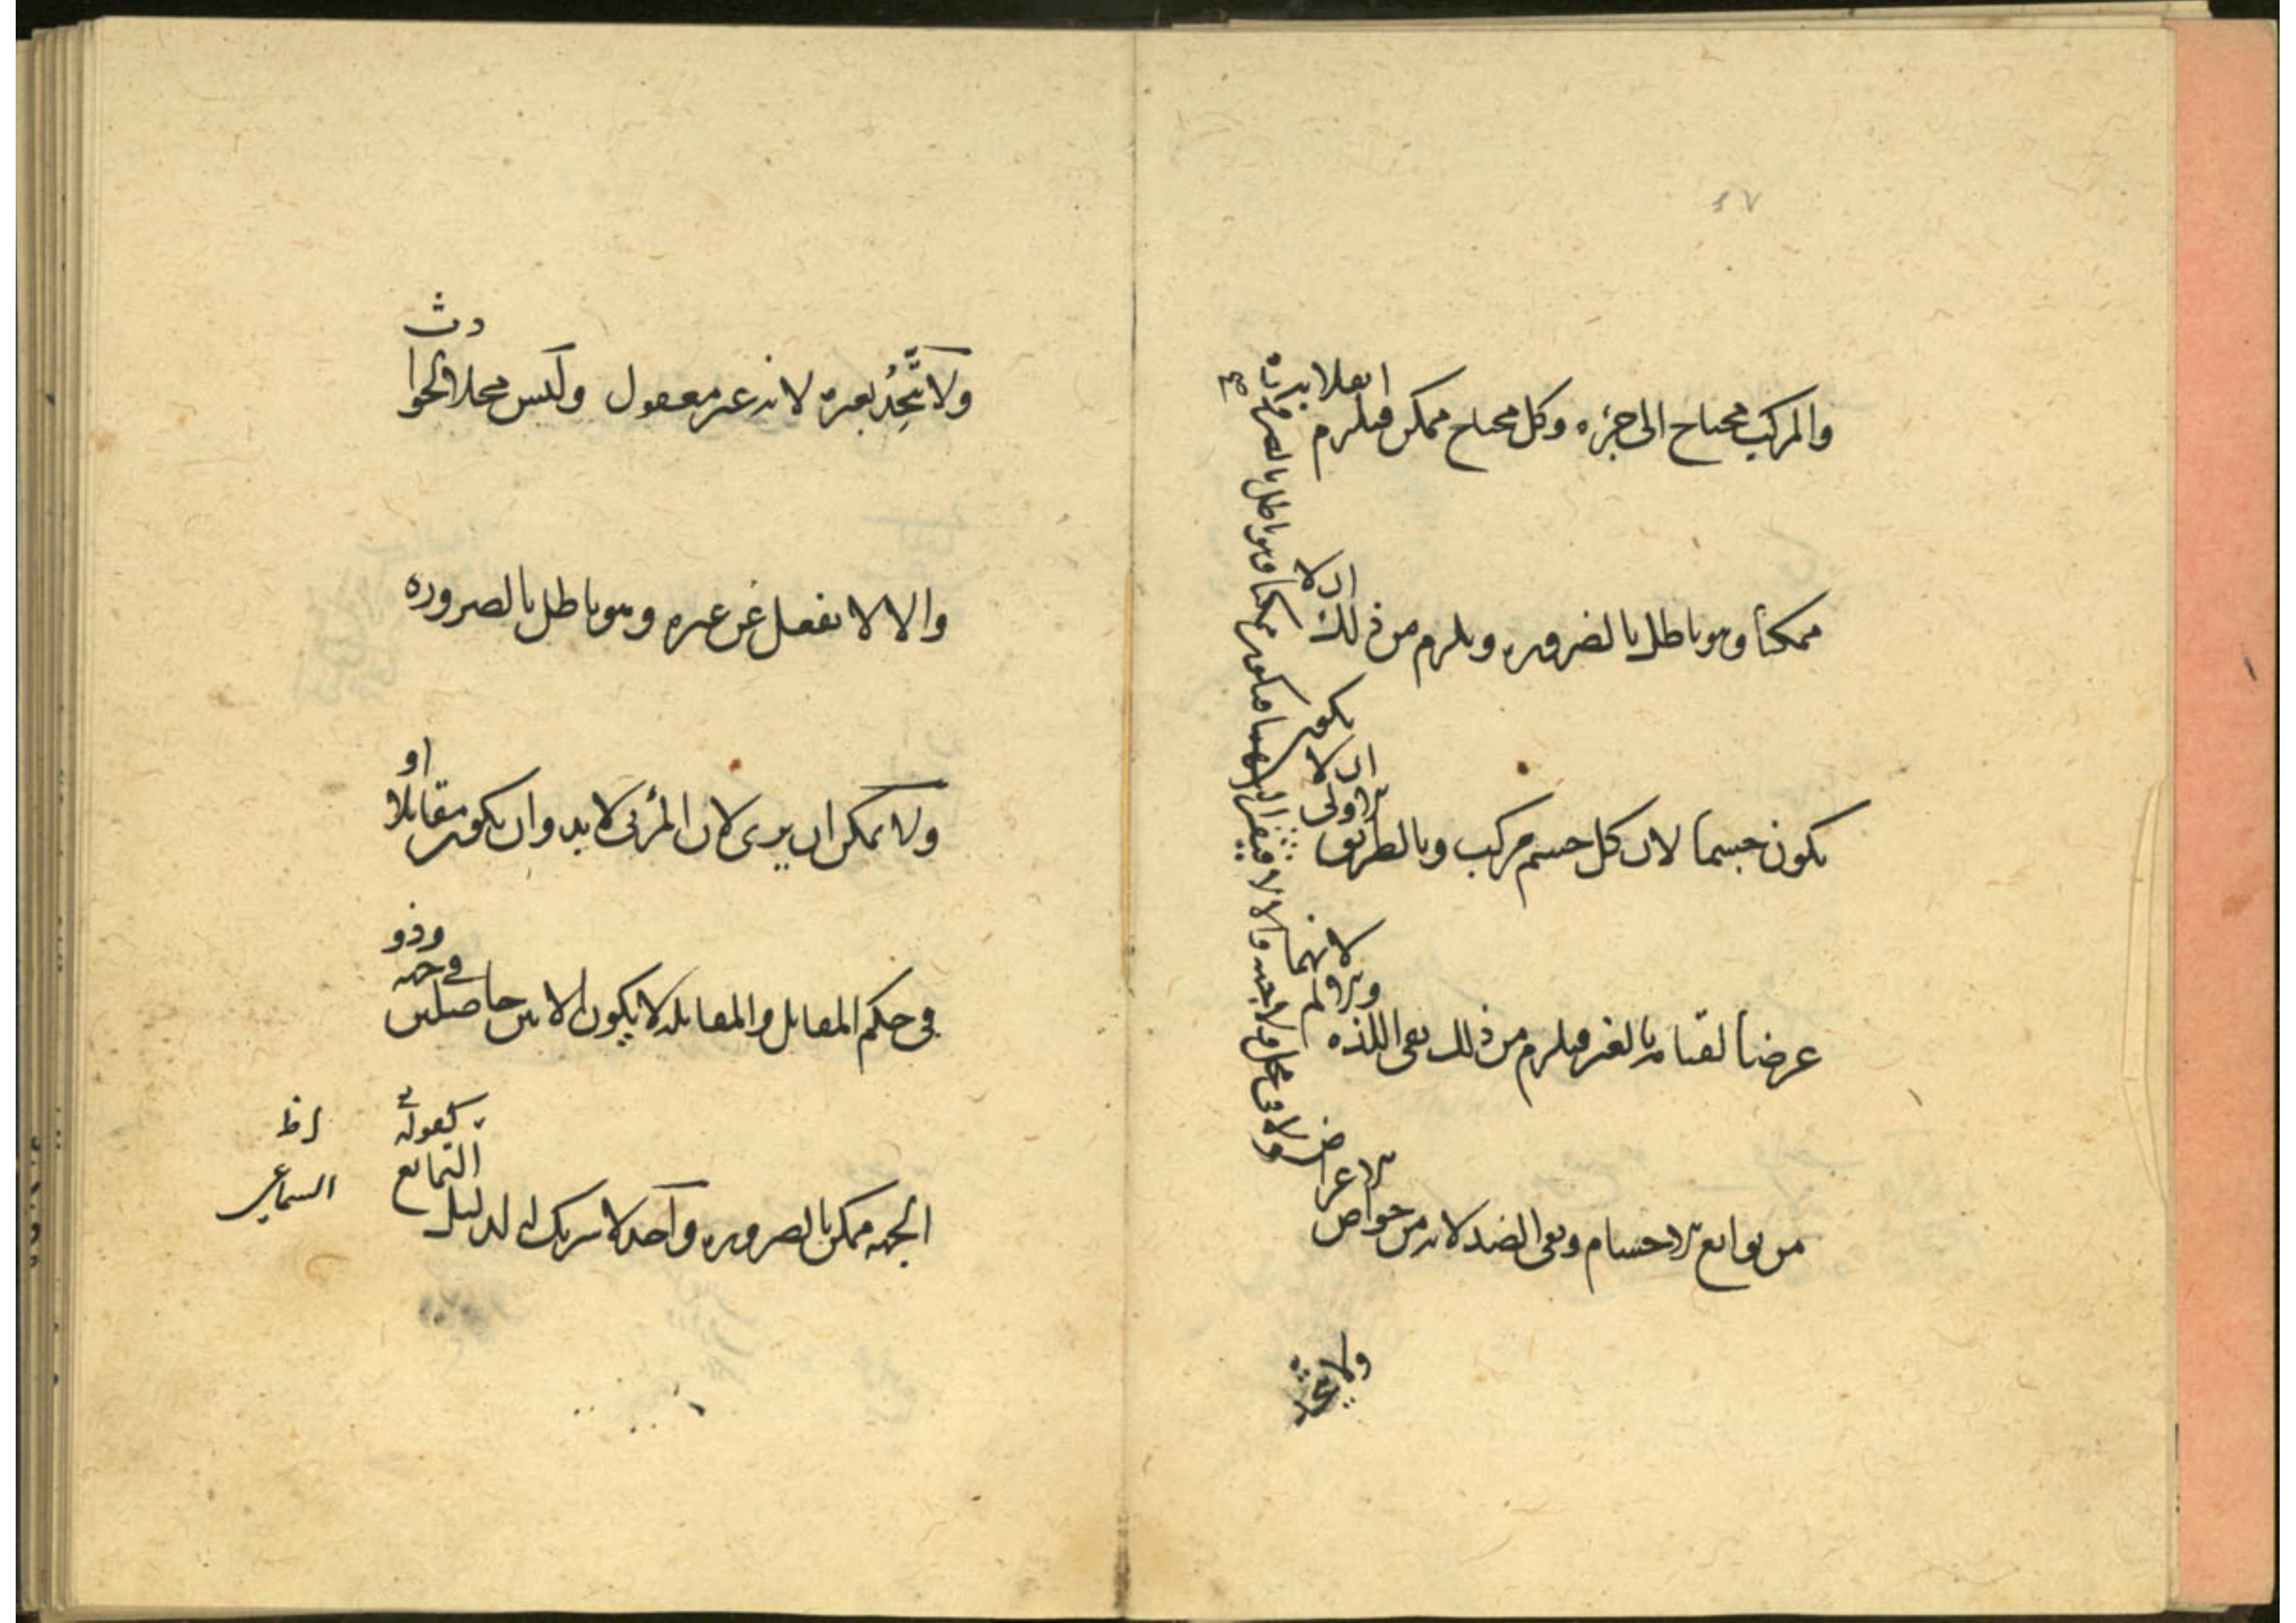 ٤٧
والمركب محتاج الى جزءه وكل محتاج ممكن فيلزم
ممكنا وهو باطل بالضروره ويلزم من ذلك ان لا
يكون جسما لان كل جسم مركب وبالطريق الاولى ان لا يكون
عرضا لقيامه بالغير فيلزم من ذلك نفى اللذه والالم لانهما
من توابع الاجسام ونفى الضد لانه من خواص الاعراض
ولا فى محل ولا جهه والا لافتقر اليهما فيكون ممكنا وهو باطل بالضروره
ولا
ولا يتّحِدُ بغيره لانه غير معقول وليس محلا للحوادث
والا لا نفعل عن غيره وهو باطل بالضروره
ولا يمكن ان يرى لان المرئى لا بد وان يكون مقابلا او
فى حكم المقابل والمقابله لا يكون الا بين حاصلين فى جهه وذو
الجهه ممكن بالضروره واحد لا شريك له لدليل التمانع
كقوله
السماعى